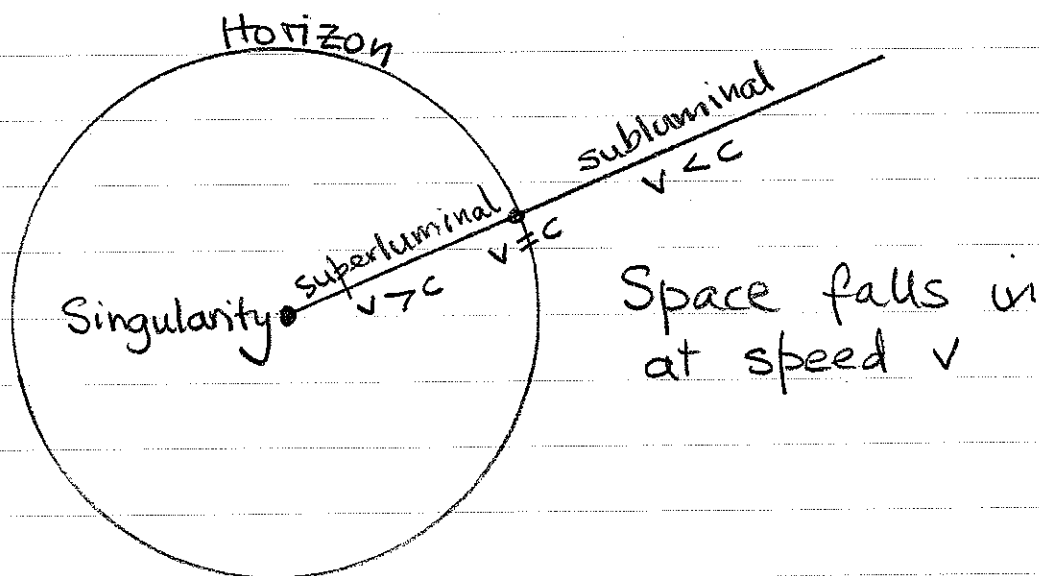 Horizon
subluminal
v < c
superluminal
v = c
v > c
Singularity
Space falls in
at speed v